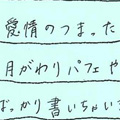 愛情のつまった
月がわりパフェや
ばっかり書いちゃいま